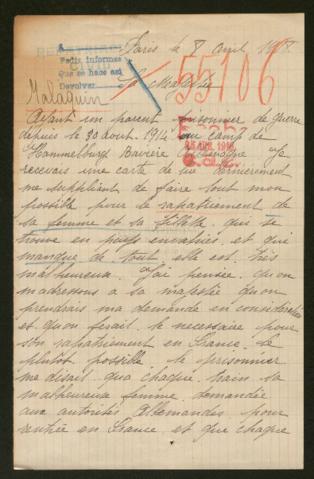 Paris le 8 avril 1918
Sa Majesté
A
Pedir informes
Que se hace así
Devolver
Malaquin
55106
Ayant un parent prisonnier de guerre
depuis le 30 aout 1914 au camp de
Hammelburg Bavière Allemagne je
recevais une carte de lui dernièrement
me suppliant de faire tout mon
possible pour le rapatriement de
sa femme et sa fillette qui se
trouve en pays envahies et qui
manque de tout elle est très
malheureuse j'ai pensée qu'en
m'adressant a sa majestée qu'on
prendrais ma demande en considération
et qu'on ferait le necessaire pour
son rapatriement en France le
plutot possible le prisonnier
me disait qua chaque train sa
malheureuse femme demandée
aux autorités Allemandes pour
rentré en France et que chaque